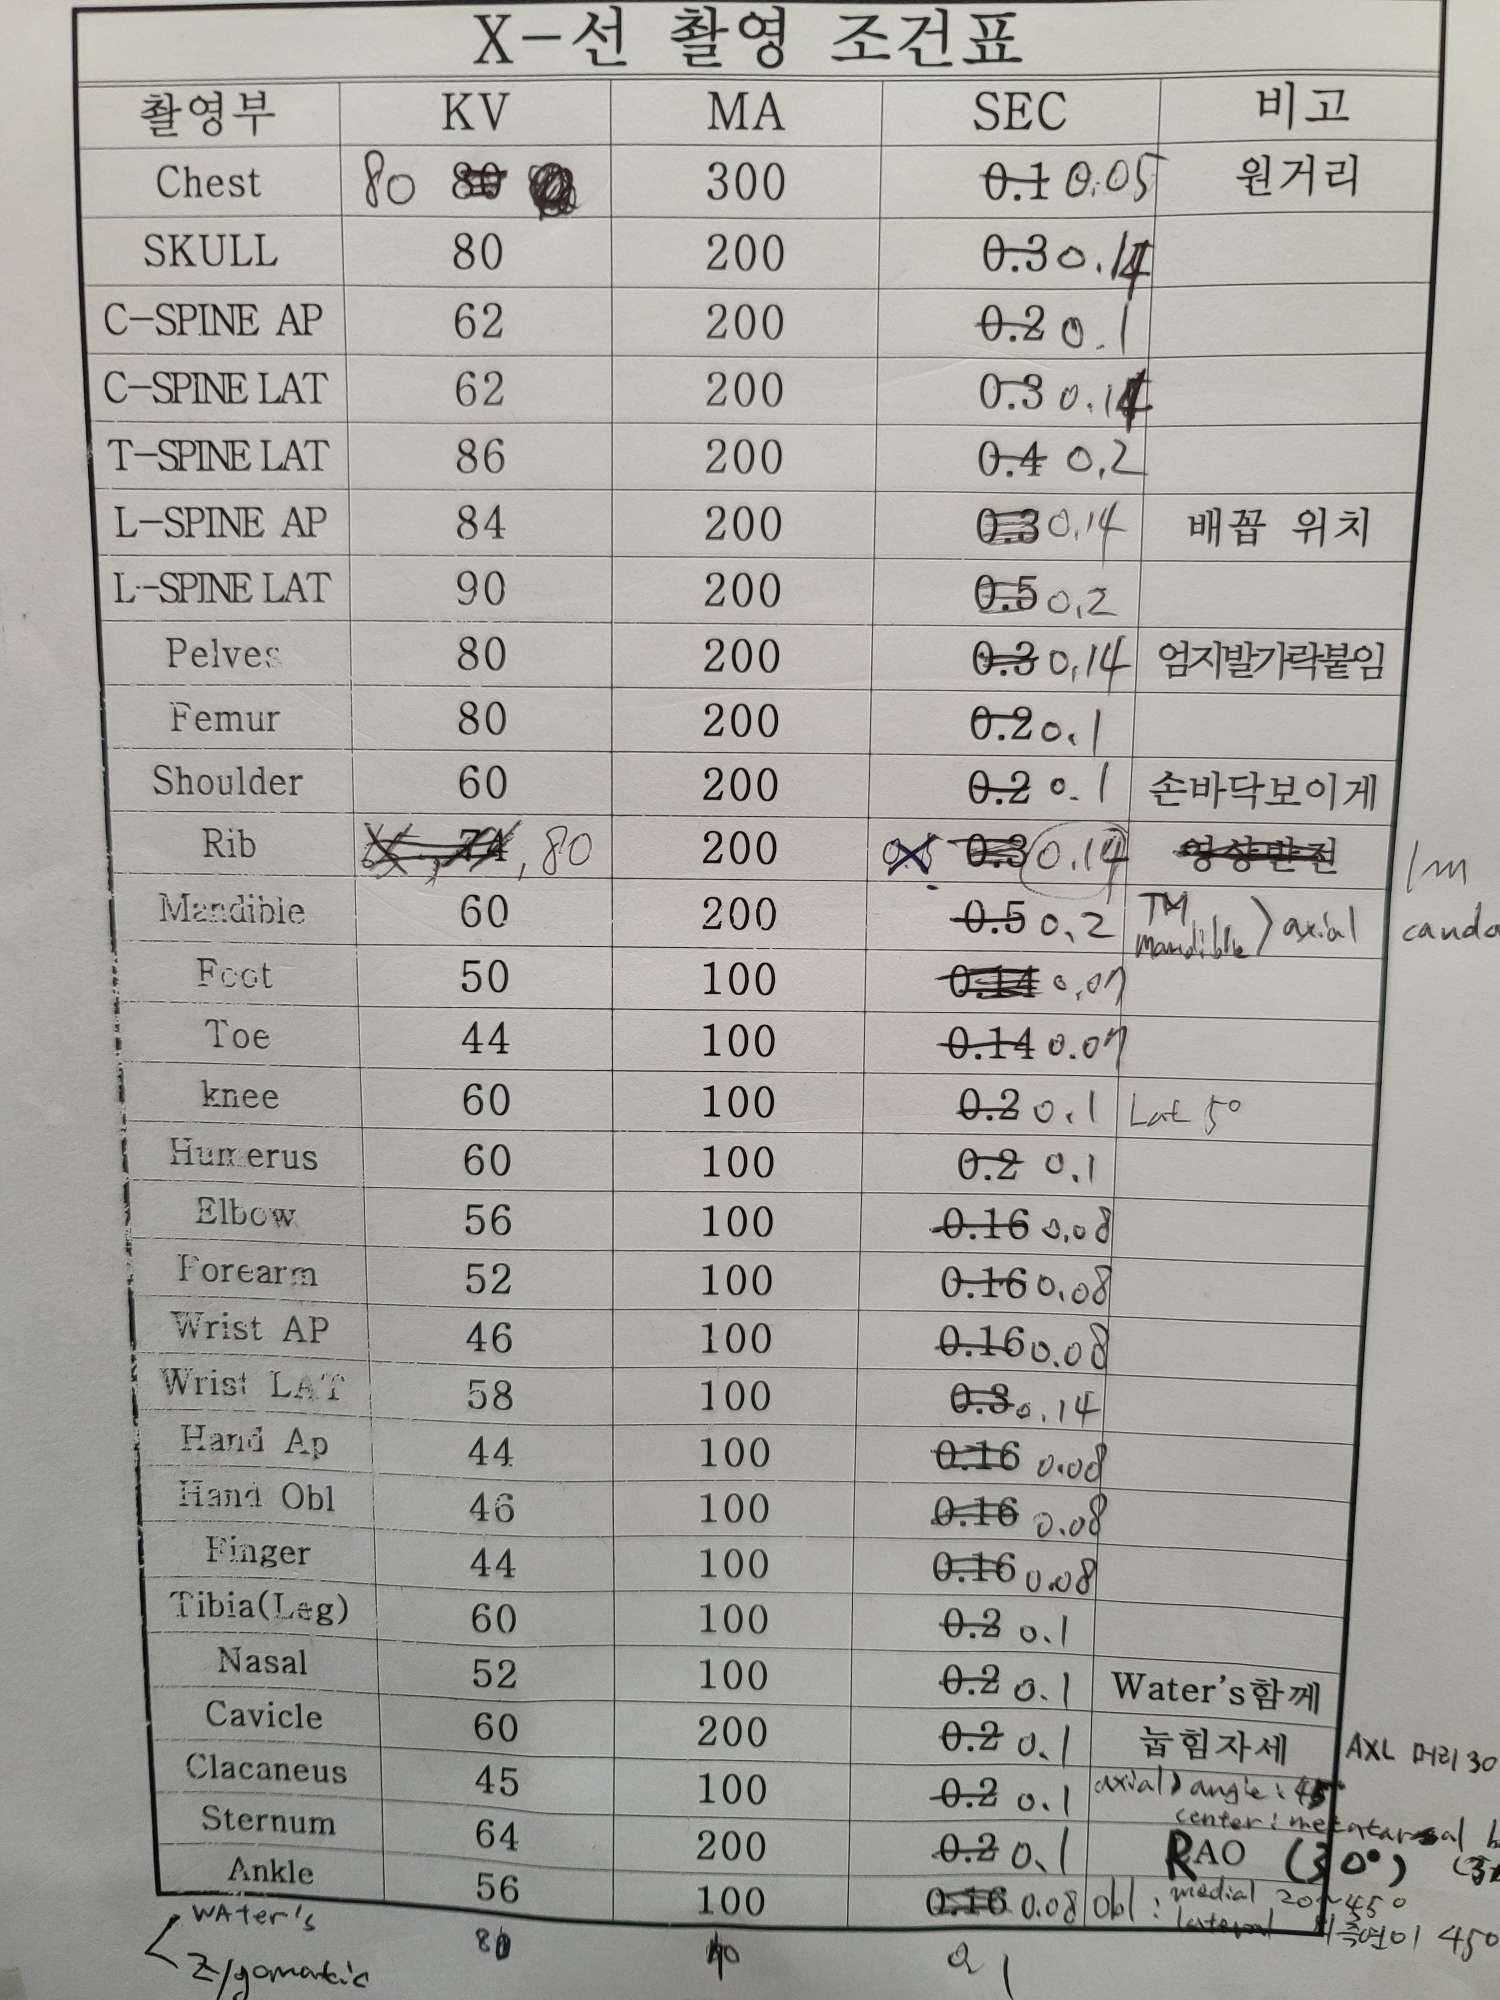 X-선 촬영 조건표
촬영부 KV MA SEC 비고
Chest 80 80 300 0.1 0.05 원거리
SKULL 80 200 0.3 0.14
C-SPINE AP 62 200 0.2 0.1
C-SPINE LAT 62 200 0.3 0.14
T-SPINE LAT 86 200 0.4 0.2
L-SPINE AP 84 200 0.3 0.14 배꼽 위치
L-SPINE LAT 90 200 0.5 0.2
Pelves 80 200 0.3 0.14 엄지발가락붙임
Femur 80 200 0.2 0.1
Shoulder 60 200 0.2 0.1 손바닥보이게
Rib 74, 80 200 0.3 0.14 영상반전 1m
Mandible 60 200 0.5 0.2 TM mandible > axial
Foot 50 100 0.14 0.07
Toe 44 100 0.14 0.07
knee 60 100 0.2 0.1 Lat 5°
Humerus 60 100 0.2 0.1
Elbow 56 100 0.16 0.08
Forearm 52 100 0.16 0.08
Wrist AP 46 100 0.16 0.08
Wrist LAT 58 100 0.3 0.14
Hand Ap 44 100 0.16 0.08
Hand Obl 46 100 0.16 0.08
Finger 44 100 0.16 0.08
Tibia(Leg) 60 100 0.2 0.1
Nasal 52 100 0.2 0.1 Water's함께
Cavicle 60 200 0.2 0.1 눕힘자세 AXL 머리 30
Clacaneus 45 100 0.2 0.1 axial > angle : 45°
center : metatarsal
Sternum 64 200 0.2 0.1 RAO (30°)
Ankle 56 100 0.16 0.08 Obl : medial 20~45°
lateral 외측연이 45°
WAter's
Zygomatic